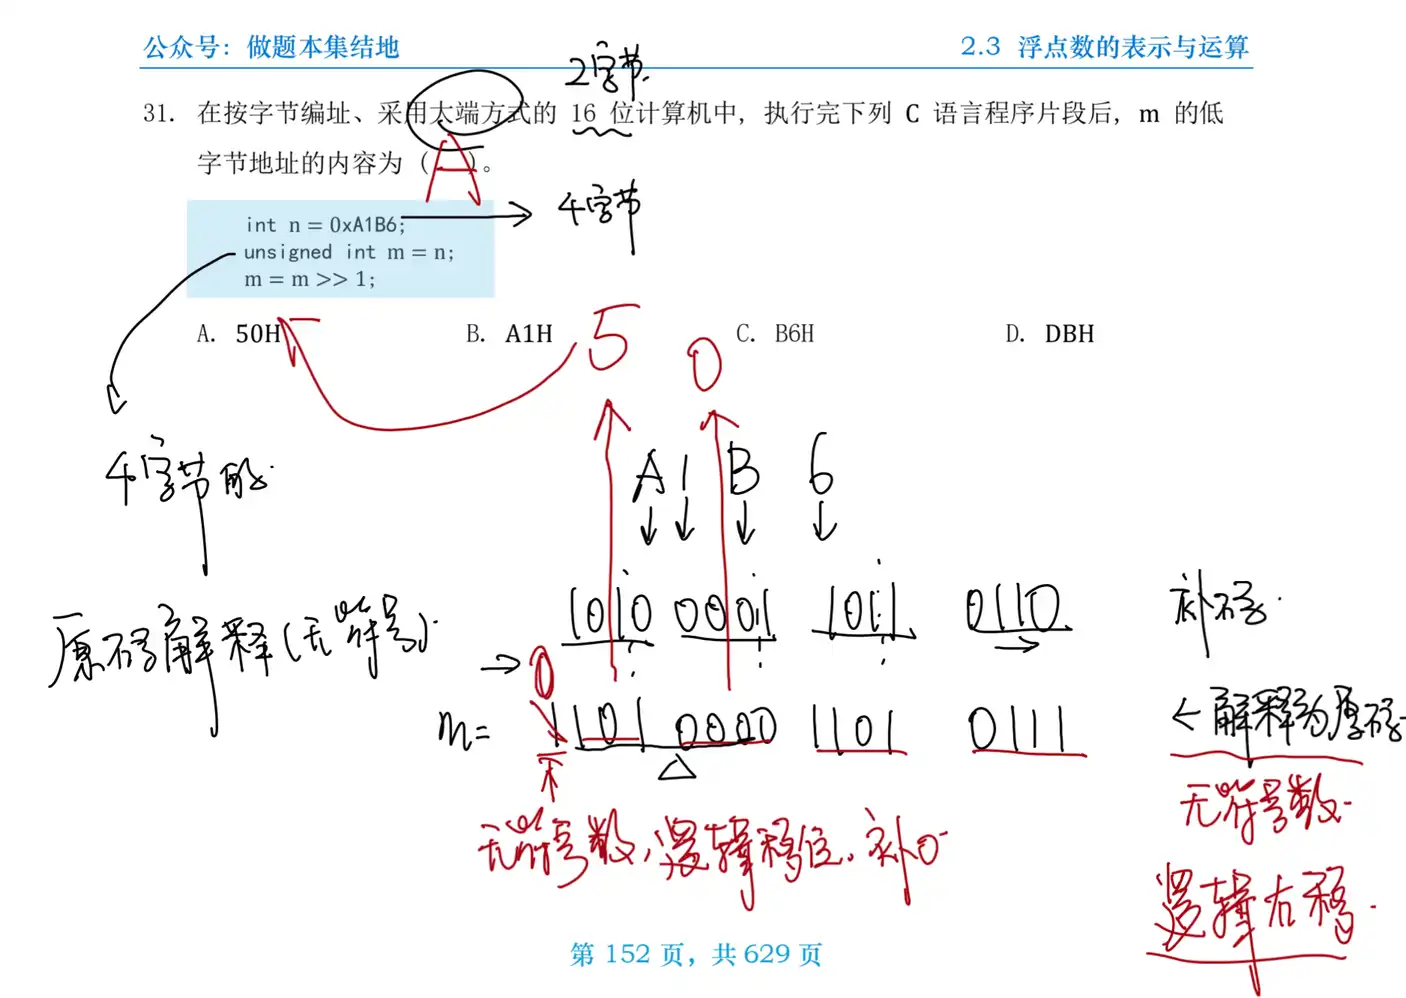 公众号：做题本集结地
2.3 浮点数的表示与运算
2字节.
31. 在按字节编址、采用大端方式的 16 位计算机中，执行完下列 C 语言程序片段后，m 的低
字节地址的内容为（ ）。
4字节
int n = 0xA1B6;
unsigned int m = n;
m = m >> 1;
A. 50H B. A1H C. B6H D. DBH
5 0
A 1 B 6
4字节
1010 0001 1011 0110 补码.
原码解释(无符号).
0
m = 1101 0000 1101 0111 ← 解释为原码.
无符号数.
无符号数,逻辑移位.补0
逻辑右移.
第 152 页，共 629 页